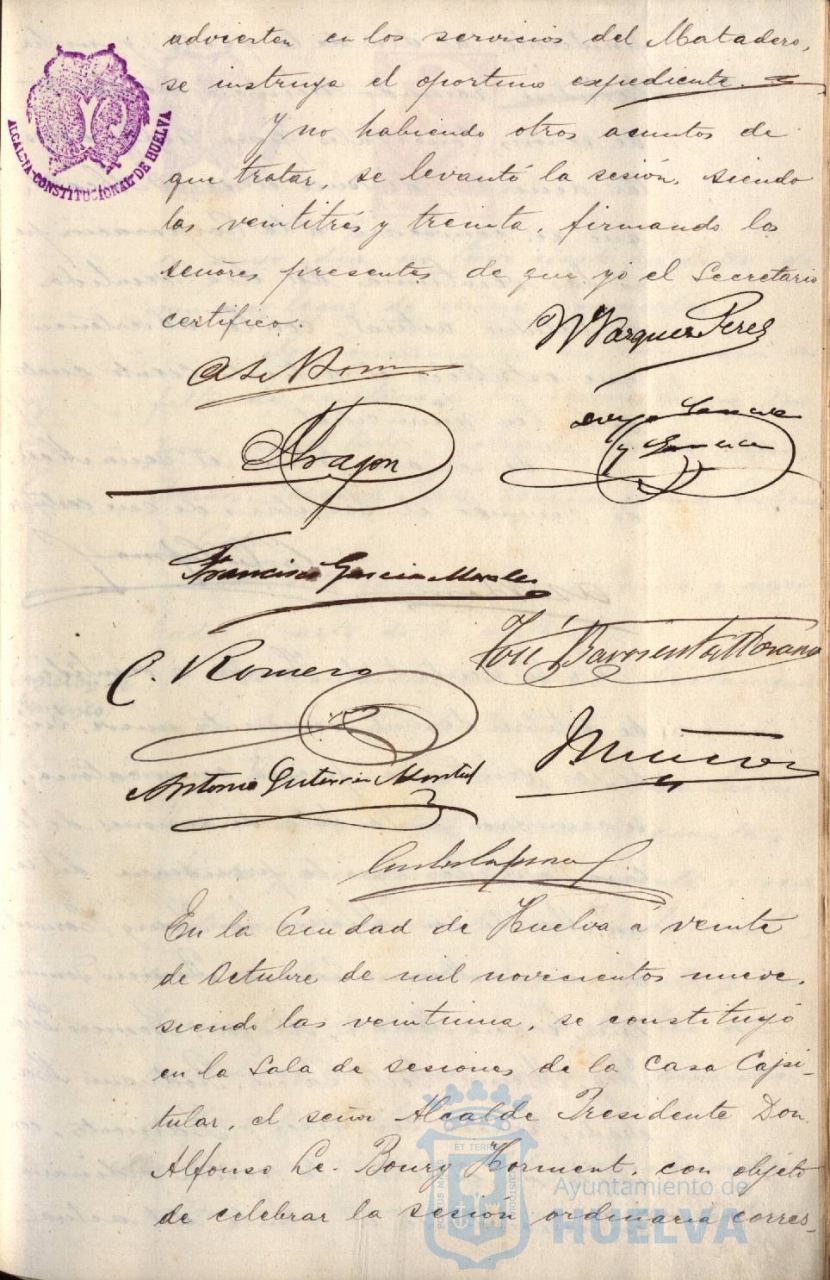 ALCALDIA CONSTITUCIONAL DE HUELVA
advierten en los servicios del Matadero,
se instruya el oportuno expediente.
Y no habiendo otros asuntos de
que tratar, se levantó la sesión, siendo
las veintitrés y treinta, firmando los
señores presentes de que yo el Secretario
certifico.
M Vazquez Perez
Aragon
y
Francisco Garcia Morales
C. Romero
José
Antonio Gutierrez
J Muñoz
En la Ciudad de Huelva á veinte
de Octubre de mil novecientos nueve,
siendo las veintiuna, se constituyó
en la Sala de sesiones de la Casa Capi-
tular, el señor Alcalde Presidente Don
Alfonso Le Bourg Horment, con objeto
de celebrar la sesión ordinaria corres-
ET TERRÆ
PORTUS MARIS
CUSTODIA
Ayuntamiento de
HUELVA